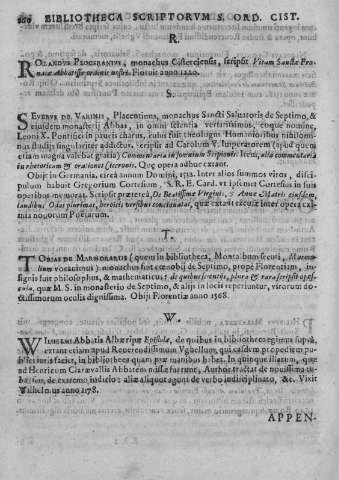 260 BIBLIOTHECA SCRIPTORVM S. ORD. CIST.
R.
ROLANDVS monachus Cisterciensis, scripsit Vitam Sanctæ Fra-
Abbatissæ ordinis nostri. Floruit anno 1220.
S.
SEVERVS DE VARINIS, Placentinus, monachus Sancti Saluatoris de Septimo, &
eiusdem monasterij Abbas, in omni scientia versatissimus, eoque nomine,
Leoni X. Pontifici in paucis charus, cuius fuit theologus Humanioribus nihilominus
studijs singulariter addictus: scripsit ad Carolum V. Imperatorem (apud quem
etiam magna valebat gratia) Commentaria in somnium Scipionis: Item, alia commentaria
in rhetoricam & orationes Ciceronis. Quæ opera adhuc extant.
Obijt in Germania, circa annum Domini, 1512. Inter alios summos viros, disci-
pulum habuit Gregorium Cortesium, S. R. E. Card. vt ipsemet Cortesius in suis
operibus memorat. Scripsit præterea, De Beatissimæ Virginis, & Annæ Matris eiusdem,
laudibus, Odas plurimas, heroicis versibus concinnatas, quæ extant excusæ inter opera
nonorum Poetarum.
T.
TOBIAS DE (quem in bibliotheca, Monta bum secuti,
vocauimus) monachus fuit cœnobij de Septimo, propè Florentiam,
signis fuit philosophus, & mathematicus: de quibus scientijs, plura & rara scripsit opus-
cula, quæ M. S. in monasterio de Septimo, & alijs in locis reperiuntur, virorum do-
ctissimorum oculis dignissima. Obijt Florentiæ anno 1568.
W.
WILHELMI Abbatis Albæripæ Epistolæ, de quibus in bibliotheca egimus suprà,
extant etiam apud Reuerendissimum Vghellum, qui easdem propediem pu-
blici iuris faciet, in bibliotheca quam præ manibus habet. In his quæ illustri, quæ
ad Henricum Claræuallis Abbatem missæ fuerunt, Author tractat de nouissima tu-
ba, siue, de extremo iudicio: aliæ aliquot agent de verbo indisciplinato, &c. Vixit
Wilhelmus anno 1178.
APPEN-